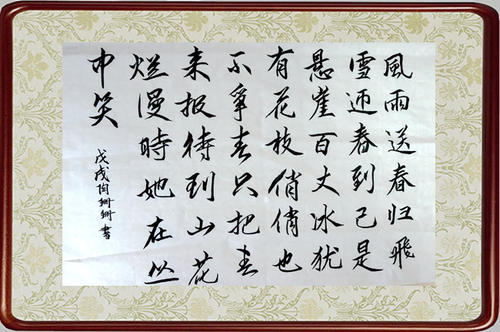 風雨送春归飛
雪迎春到己是
悬崖百丈冰犹
有花枝俏俏也
不爭春只把春
来报待到山花
烂漫時她在丛
中笑
戊戌陶珊珊書